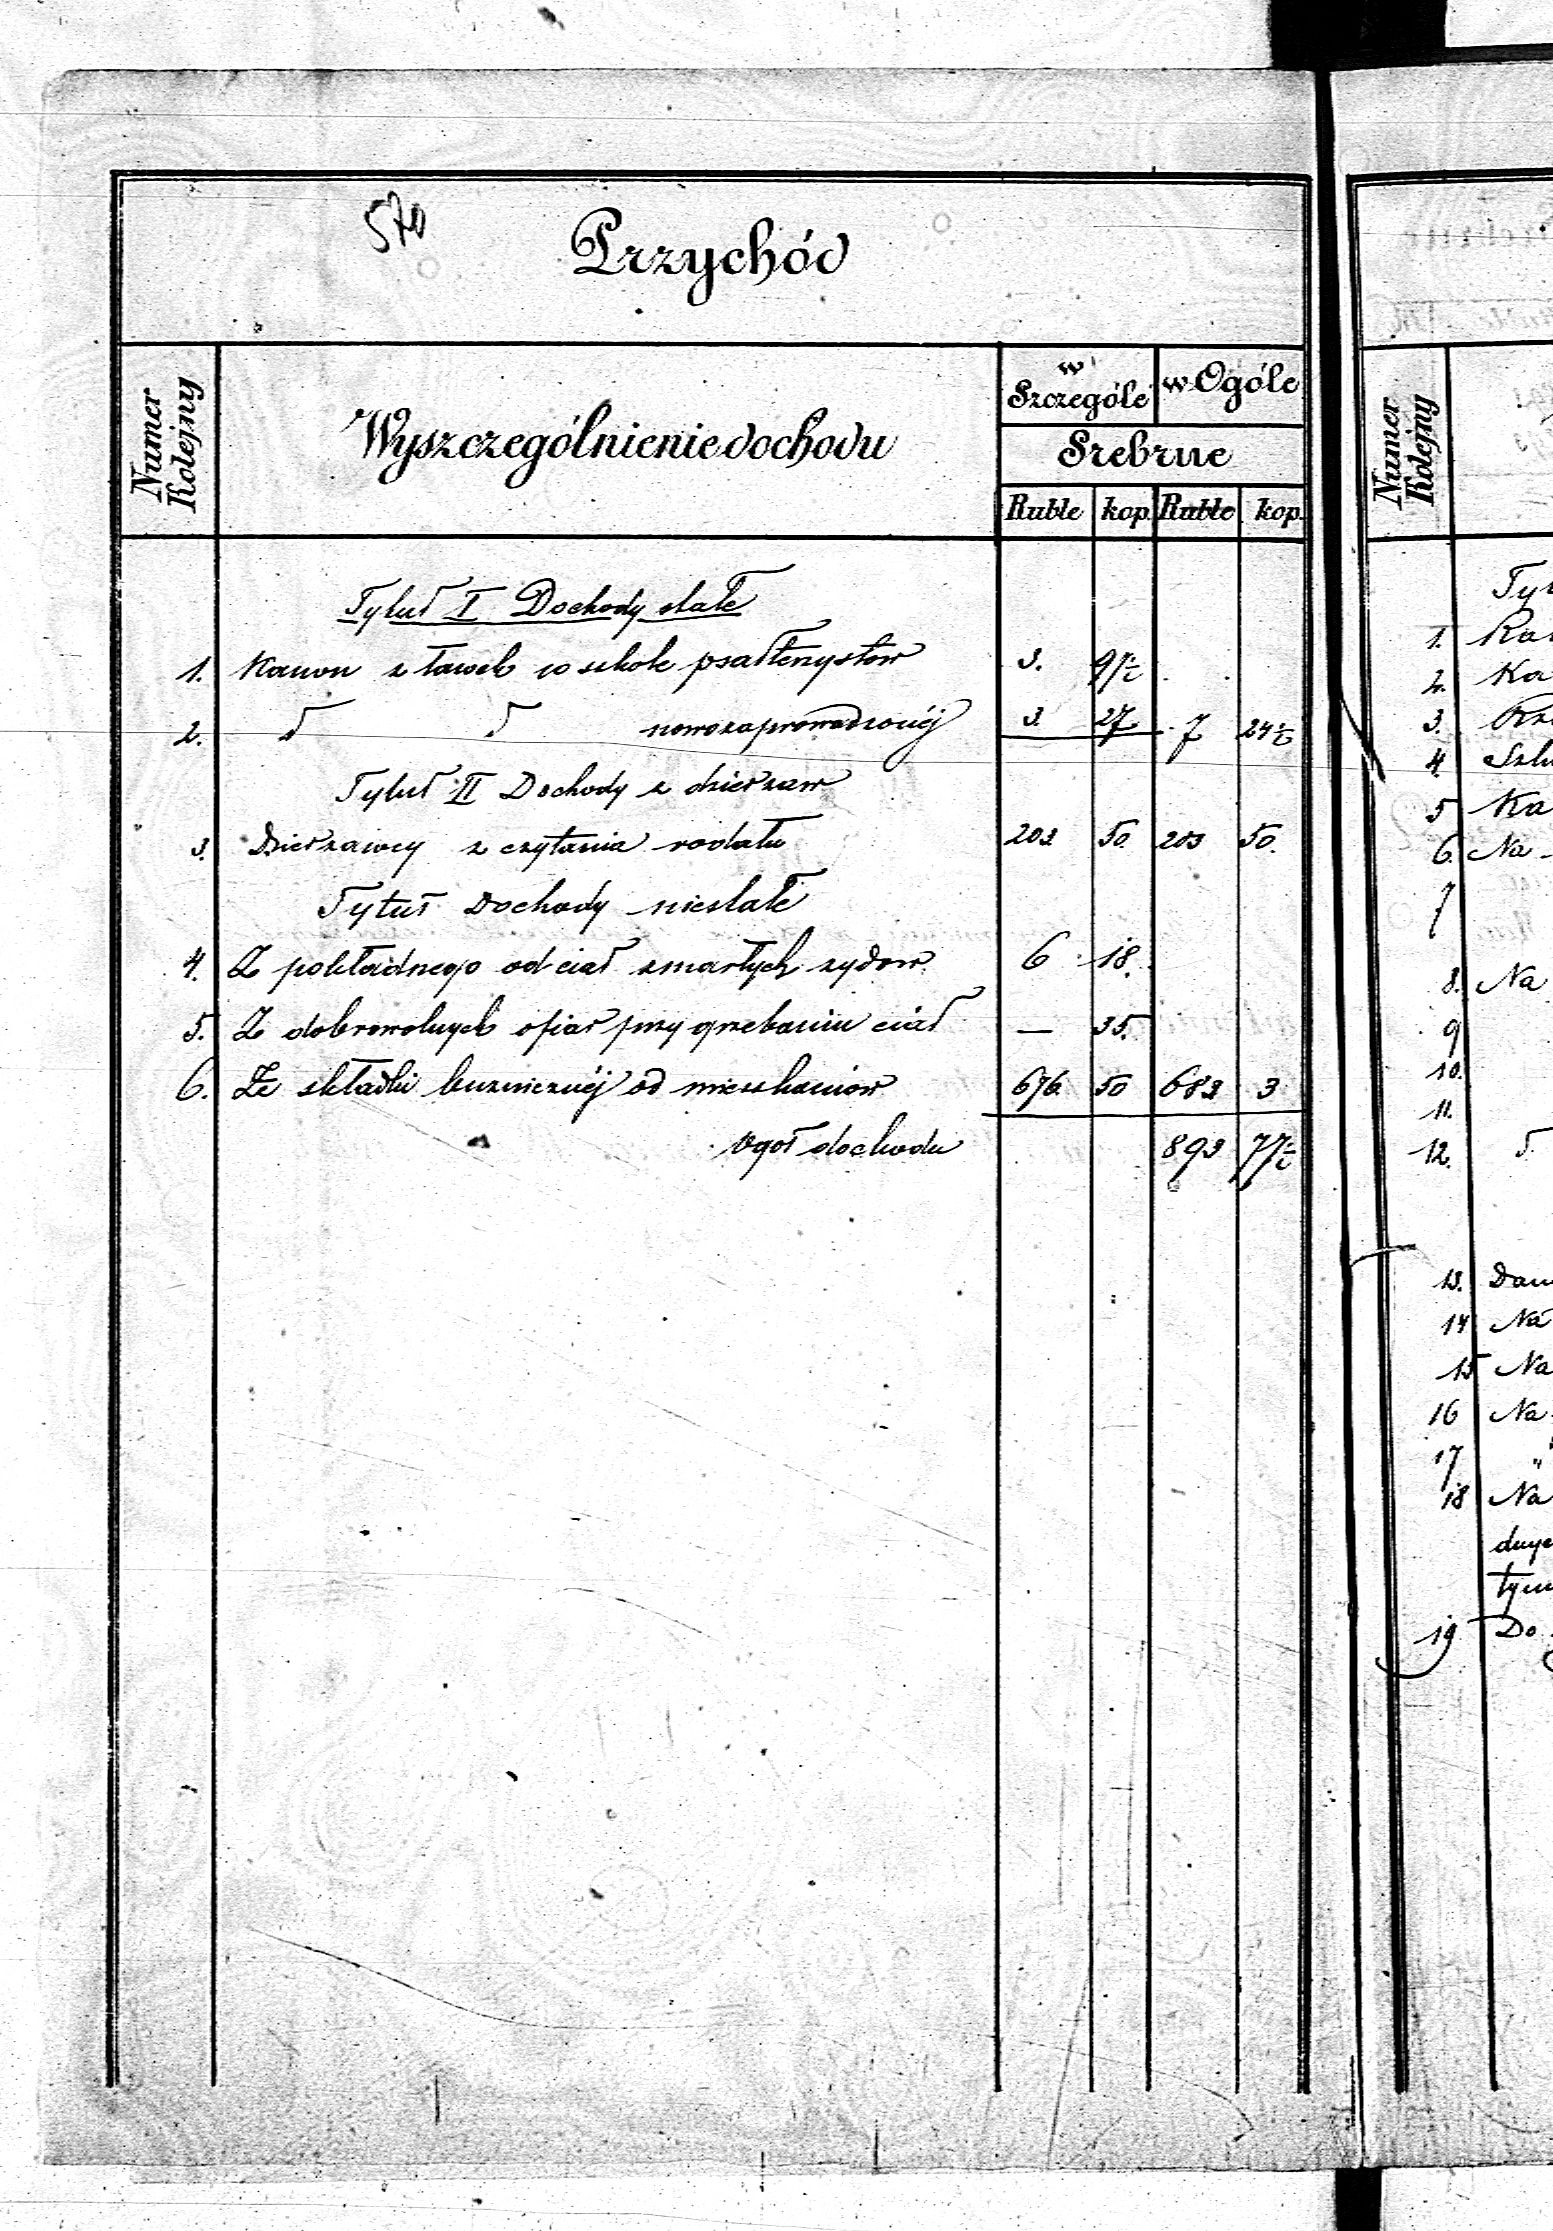 570
Przychód
Numer Kolejny
Wyszczególnienie dochodu
w Szczególe
w Ogóle
Srebrne
Ruble kop. Ruble kop.
Tytuł I Dochody stałe
1. Kanon z ławek w szkole psałterzystów 3. 97½
2. " " nowozaprowadzonéj 3. 27 7 24½
Tytuł II Dochody z dzierzaw
3. Dzierzawcy z czytania rodału 203 50. 203 50.
Tytuł Dochody niestałe
4. Z pokładnego od ciał zmarłych zydow 6 18.
5. Z dobrowolnych ofiar przy grzebaniu ciał — 35.
6. Ze składki buznicznéj od mieszkańców 676. 50 683 3
Ogół dochodu 893 77½
Numer Kolejny
1.
2. Ka
3.
4.
5 Ka
6. Na
7
8. Na
9
10.
11.
12.
13. Dan
14 Na
15 Na
16 Na
17 "
18 Na
19 Do